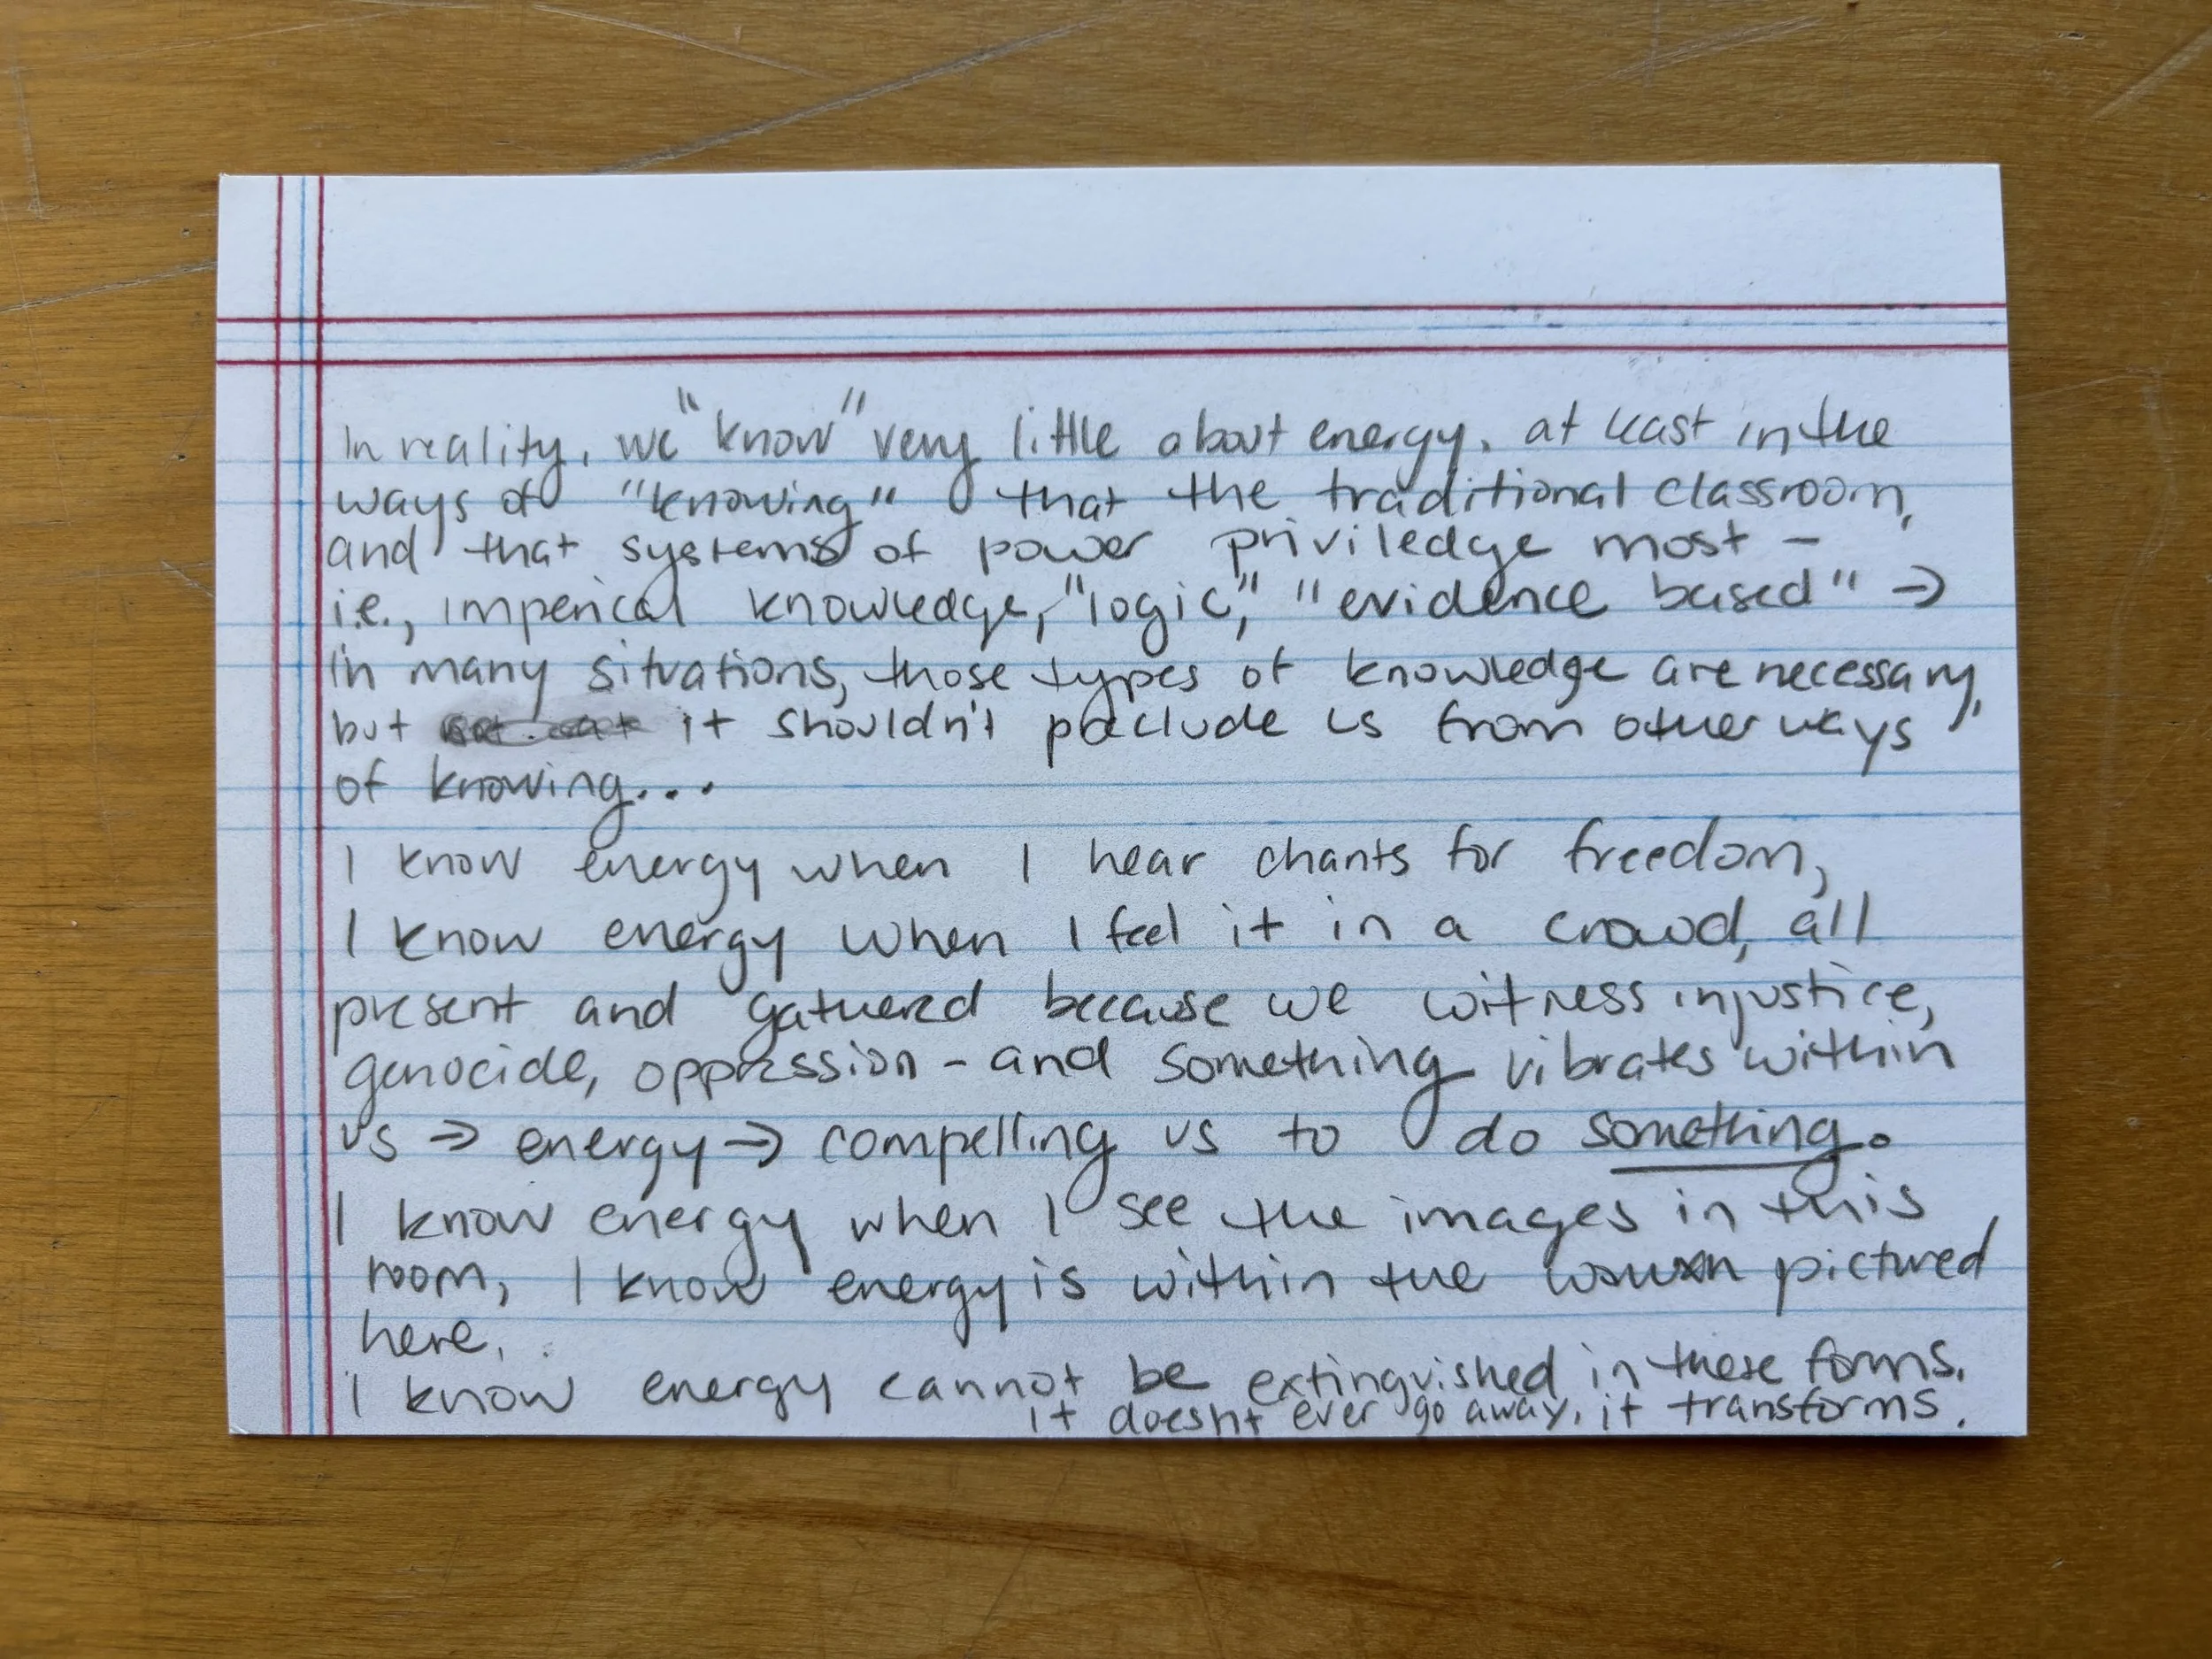 In reality, we "know" very little about energy. at least in the
ways of "knowing" that the traditional classroom,
and that systems of power priviledge most –
i.e., imperical knowledge, "logic," "evidence based" →
in many situations, those types of knowledge are necessary,
but it shouldn't preclude us from other ways
of knowing...
I know energy when I hear chants for freedom,
I know energy when I feel it in a crowd, all
present and gathered because we witness injustice,
genocide, oppression - and something vibrates within
us → energy → compelling us to do something.
I know energy when I see the images in this
room, I know energy is within the pictured
here.
I know energy cannot be extinguished in these forms.
it doesn't ever go away. it transforms.